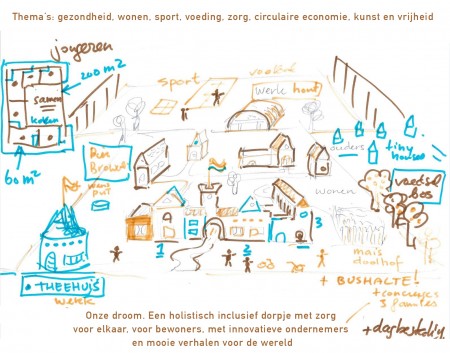 Thema's: gezondheid, wonen, sport, voeding, zorg, circulaire economie, kunst en vrijheid
jongeren
200 m²
samen
koken
60 m²
sport
werk hout
ouders
tiny
houses
wonen
voedsel
bos
mais
doolhof
put
THEEHUIS
werk
1
2
3
+ BUSHALTE!
+ conciërges
3 families
+ dagbesteding
Onze droom. Een holistisch inclusief dorpje met zorg
voor elkaar, voor bewoners, met innovatieve ondernemers
en mooie verhalen voor de wereld